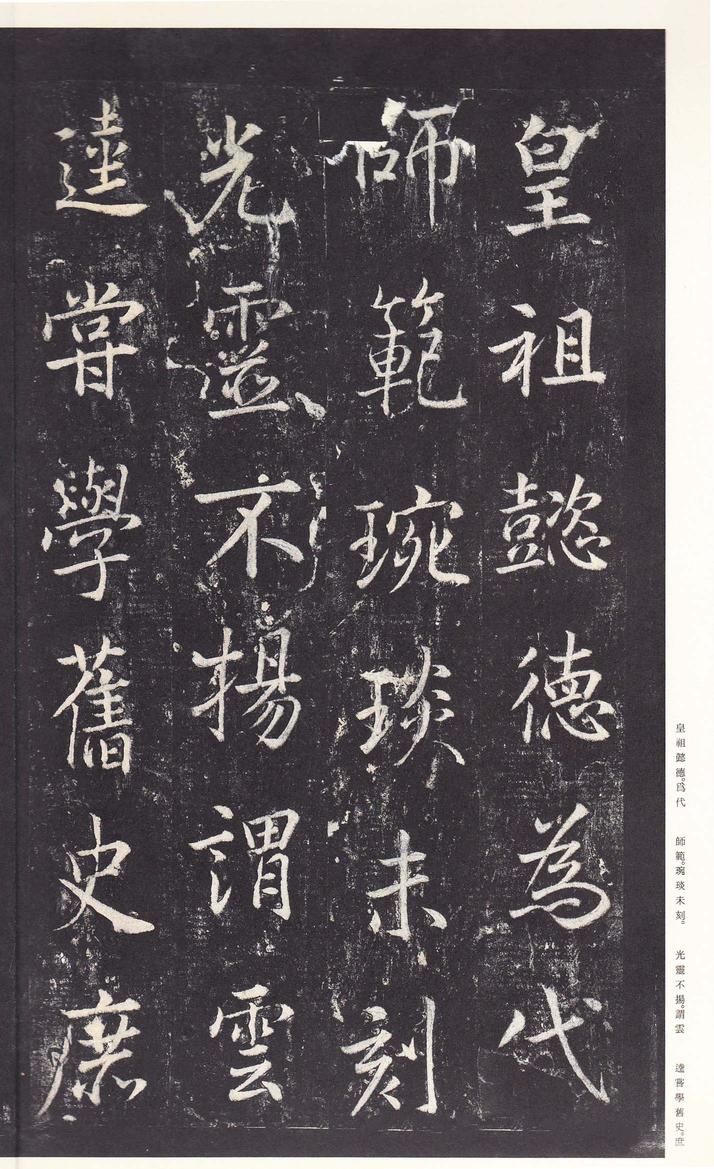 皇祖懿德為代
師範琬琰未刻
光靈不揚謂雲
逵嘗學舊史庶
皇祖懿德。爲代　師範。琬琰未刻。　光靈不揚。謂雲　逵嘗學舊史。庶